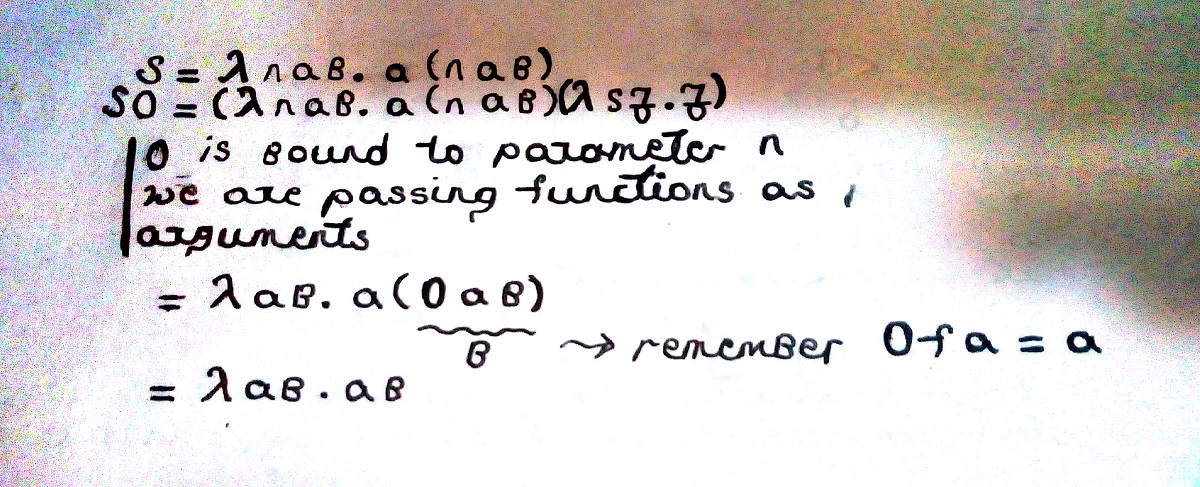 S = λnaB. a (n a B)
S0 = (λnaB. a (n a B)(λ sz.z)
0 is Bound to parameter n
we are passing functions as
arguments
= λaB. a (0 a B)
B → remember 0 f a = a
= λaB. a B